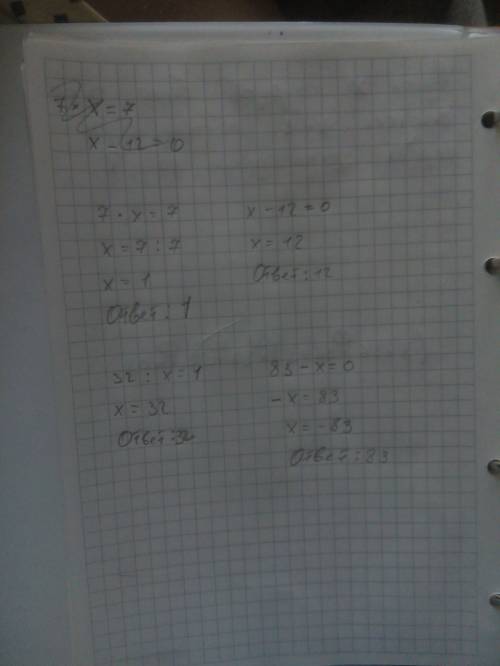 7 · x = 7
x - 12 = 0
7 · x = 7
x = 7 : 7
x = 1
Ответ: 1
x - 12 = 0
x = 12
Ответ: 12
32 : x = 1
x = 32
Ответ: 32
83 - x = 0
- x = 83
x = - 83
Ответ: 83